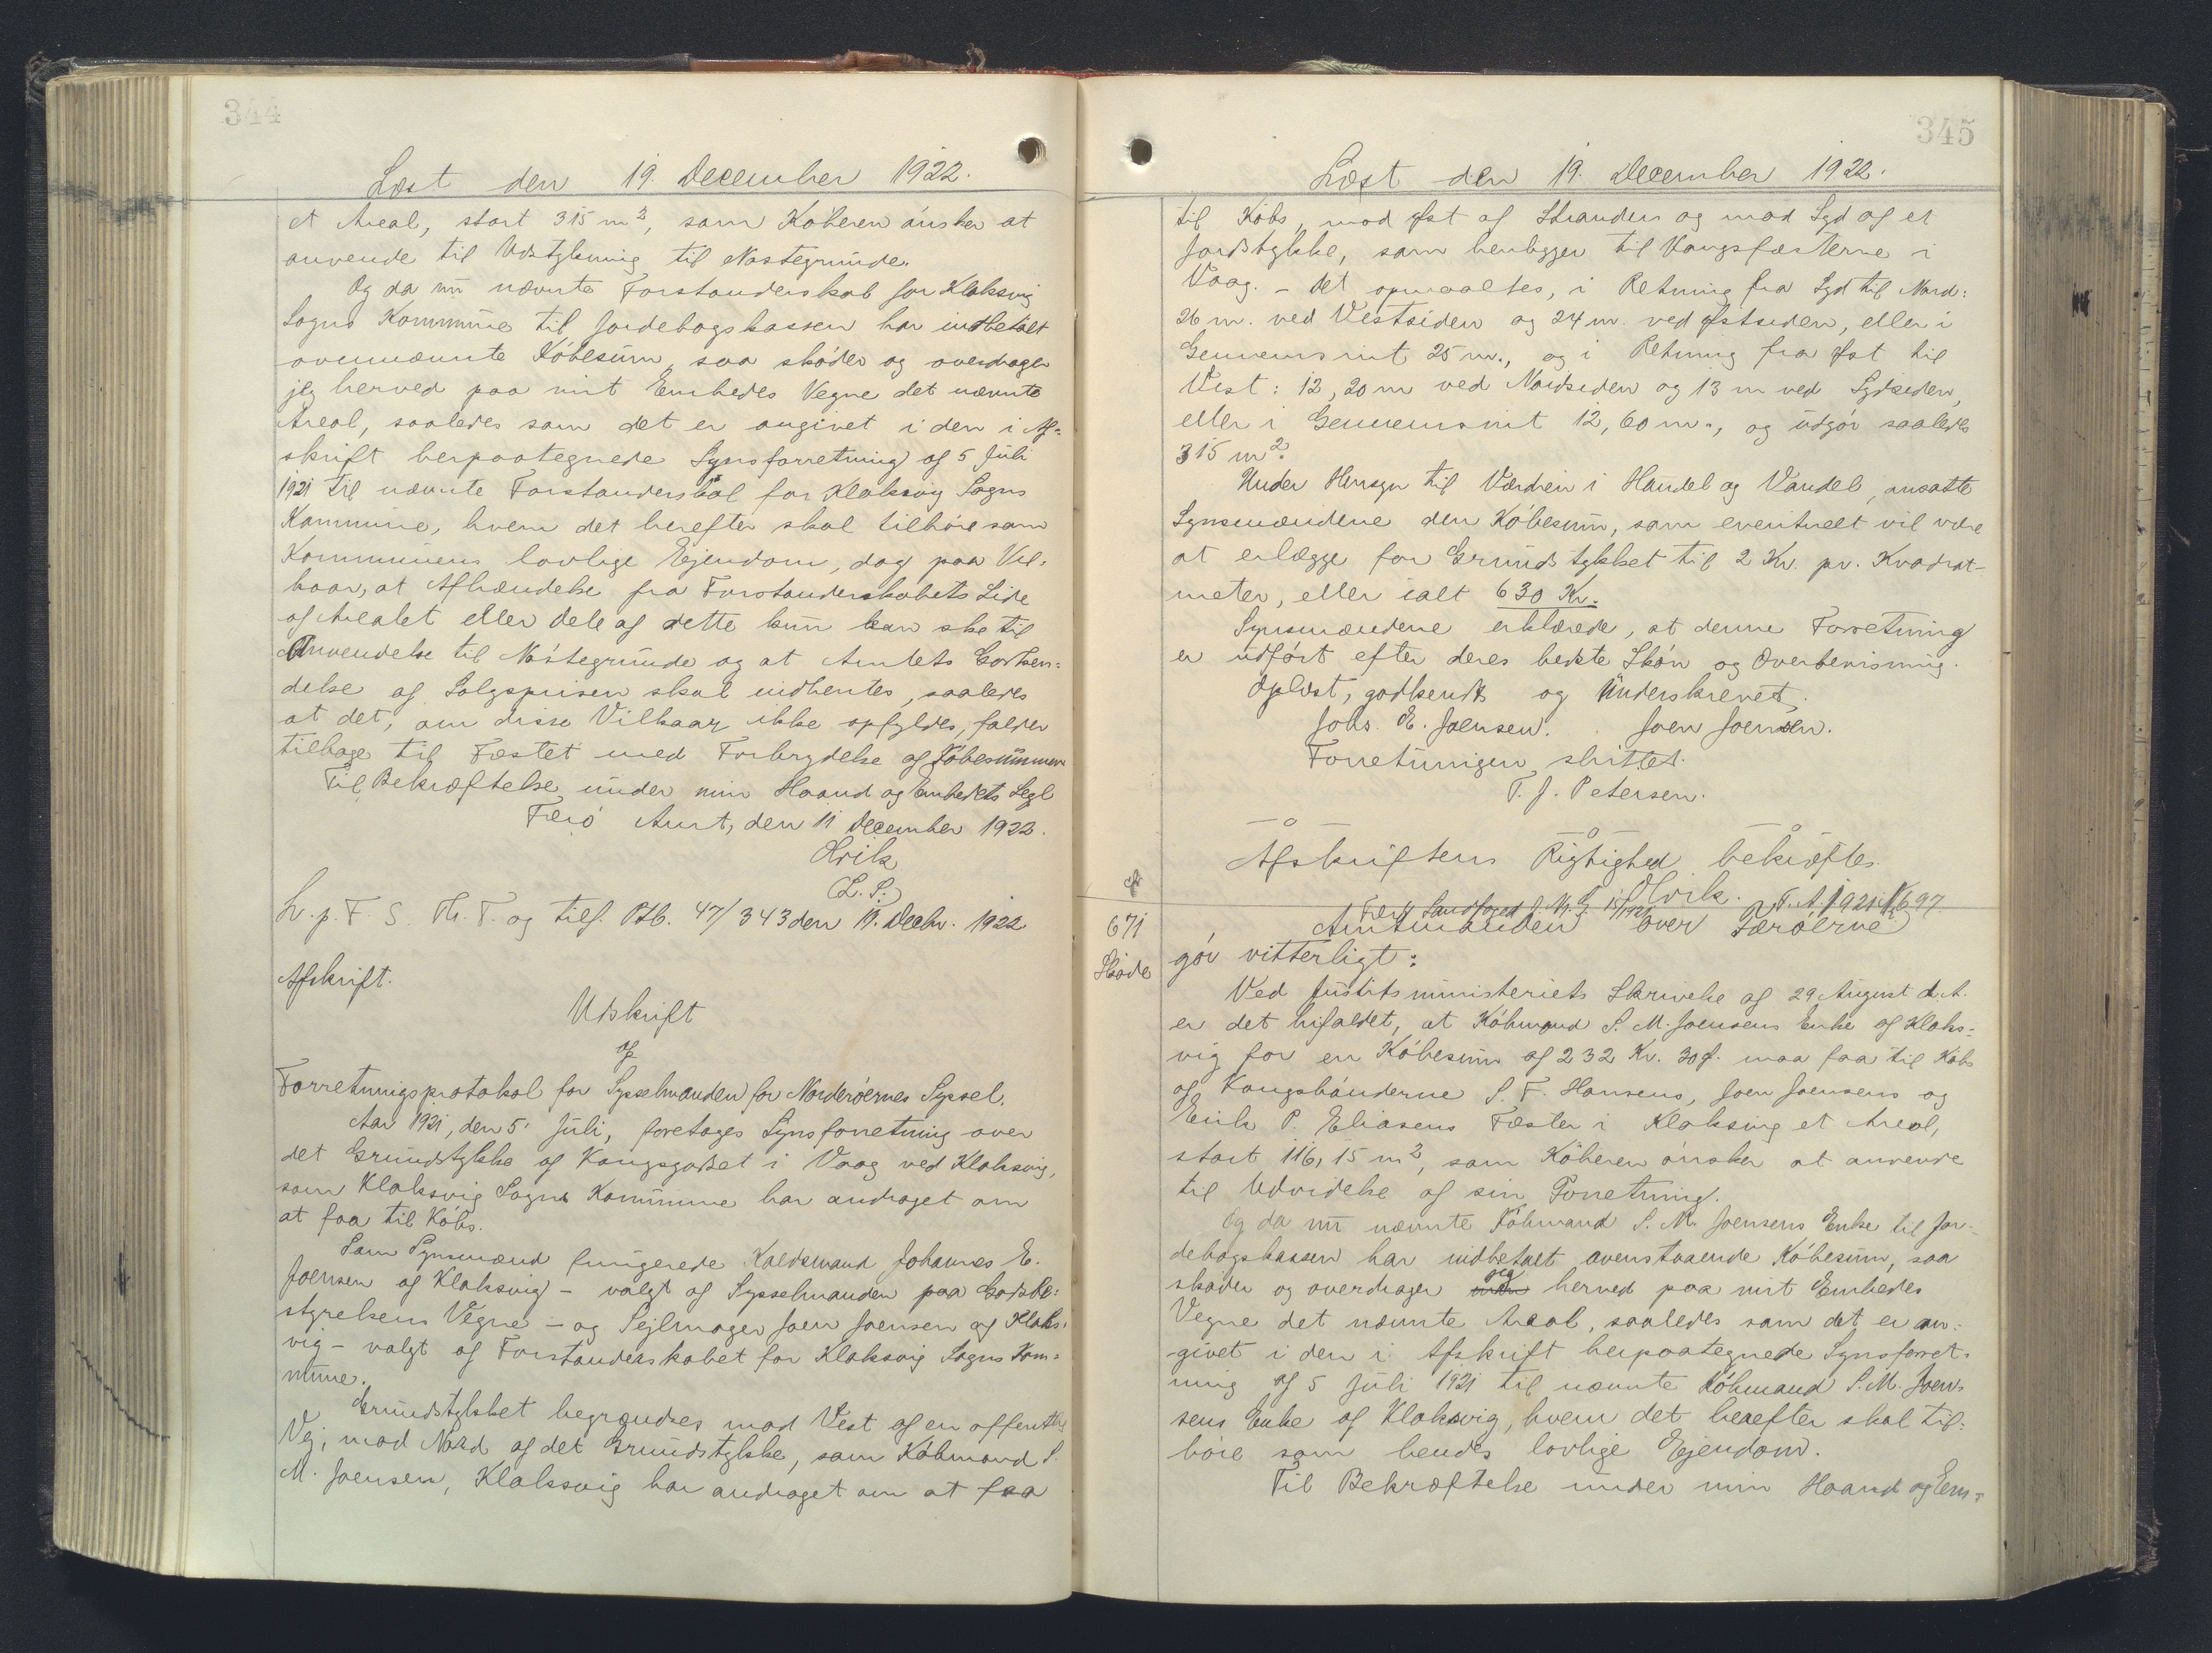 344
Læst den 19. December 1922.
et Areal, stort 315 m², som Køberen ønsker at
anvende til Udstykning til Nøstegrunde.
Og da nu nævnte Forstanderskab for Klaksvig
Sogns Kommune til Jordebogskassen har indbetalt
ovennævnte Købesum, saa skøder og overdrager
jeg herved paa mit Embedes Vegne det nævnte
Areal, saaledes som det er angivet i den i Af-
skrift herpaategnede Synsforretning af 5 Juli
1921 til nævnte Forstanderskab for Klaksvig Sogns
Kommune, hvem det herefter skal tilhøre som
Kommunens lovlige Ejendom, dog paa Vil-
kaar, at Afhændelse fra Forstanderskabets Side
af Arealet eller dele af dette kun kan ske til
Anvendelse til Nøstegrunde og at Amtets Godken-
delse af Salgsprisen skal indhentes, saaledes
at det, om disse Vilkaar ikke opfyldes, falder
tilbage til Fæstet med Forbrydelse af Købesummen
Til Bekræftelse under min Haand og Embedets Segl
Færø Amt, den 11 December 1922.
Hvik
(L.S.)
L. p. F. S. Th. T. og tilf. Ptb. 47/343 den 19. Decbr. 1922
Afskrift.
Udskrift
af
Forretningsprotokol for Sysselmanden for Norderøernes Syssel.
Aar 1921, den 5' Juli, foretoges Synsforretning over
det Grundstykke af Kongsgodset i Vaag ved Klaksvig,
som Klaksvig Sogns Kommune har andraget om
at faa til Købs.
Som Synsmænd fungerede Kaldsmand Johannes E.
Joensen af Klaksvig - valgt af Sysselmanden paa Godsbe-
styrelsens Vegne - og Sejlmager Joen Joensen af Klaks-
vig - valgt af Forstanderskabet for Klaksvig Sogns Kom-
mune.
Grundstykket begrændses mod Vest af en offentlig
Vej, mod Nord af det Grundstykke, som Købmand S.
M. Joensen, Klaksvig har andraget om at faa
345
Læst den 19. December 1922.
til Købs, mod Øst af Stranden og mod Syd af et
Jordstykke, som henligger til Kongsfæsterne i
Vaag. - Det opmaaltes, i Retning fra Syd til Nord:
26 m. ved Vestsiden og 24 m. ved Østsiden, eller i
Gennemsnit 25 m., og i Retning fra Øst til
Vest: 12,20 m ved Nordsiden og 13 m ved Sydsiden,
eller i Gennemsnit 12,60 m., og udgør saaledes
315 m².
Under Hensyn til Værdien i Handel og Vandel, ansatte
Synsmændene den Købesum, som eventuelt vil være
at erlægge for Grundstykket til 2 Kr. pr. Kvadrat-
meter, eller ialt 630 Kr.
Synsmændene erklærede, at denne Forretning
er udført efter deres bedste Skøn og Overbevisning.
Oplæst, godkendt og Underskrevet.
Johs. E. Joensen. Joen Joensen.
Forretningen sluttet.
T. J. Petersen.
Afskriftens Rigtighed bekræftes.
Hvik.
T. A. 1921 K 697
671
Skøde
Amtmanden over Færøerne
gør vitterligt:
Ved Justitsministeriets Skrivelse af 29 August d. A.
er det bifaldet, at Købmand S. M. Joensens Enke af Klaks-
vig for en Købesum af 232 Kr. 30 Ø. maa faa til Købs
af Kongsbønderne S. F. Hansens, Joen Joensens og
Erik P. Eliasens Fæster i Klaksvig et Areal,
stort 116,15 m², som Køberen ønsker at anvende
til Udvidelse af sin Forretning.
Og da nu nævnte Købmand S. M. Joensens Enke til Jor-
debogskassen har indbetalt ovenstaaende Købesum, saa
skøder og overdrager jeg herved paa mit Embedes
Vegne det nævnte Areal, saaledes som det er an-
givet i den i Afskrift herpaategnede Synsforret-
ning af 5 Juli 1921 til nævnte Købmand S. M. Joen-
sens Enke af Klaksvig, hvem det herefter skal til-
høre som hendes lovlige Ejendom.
Til Bekræftelse under min Haand og Em-